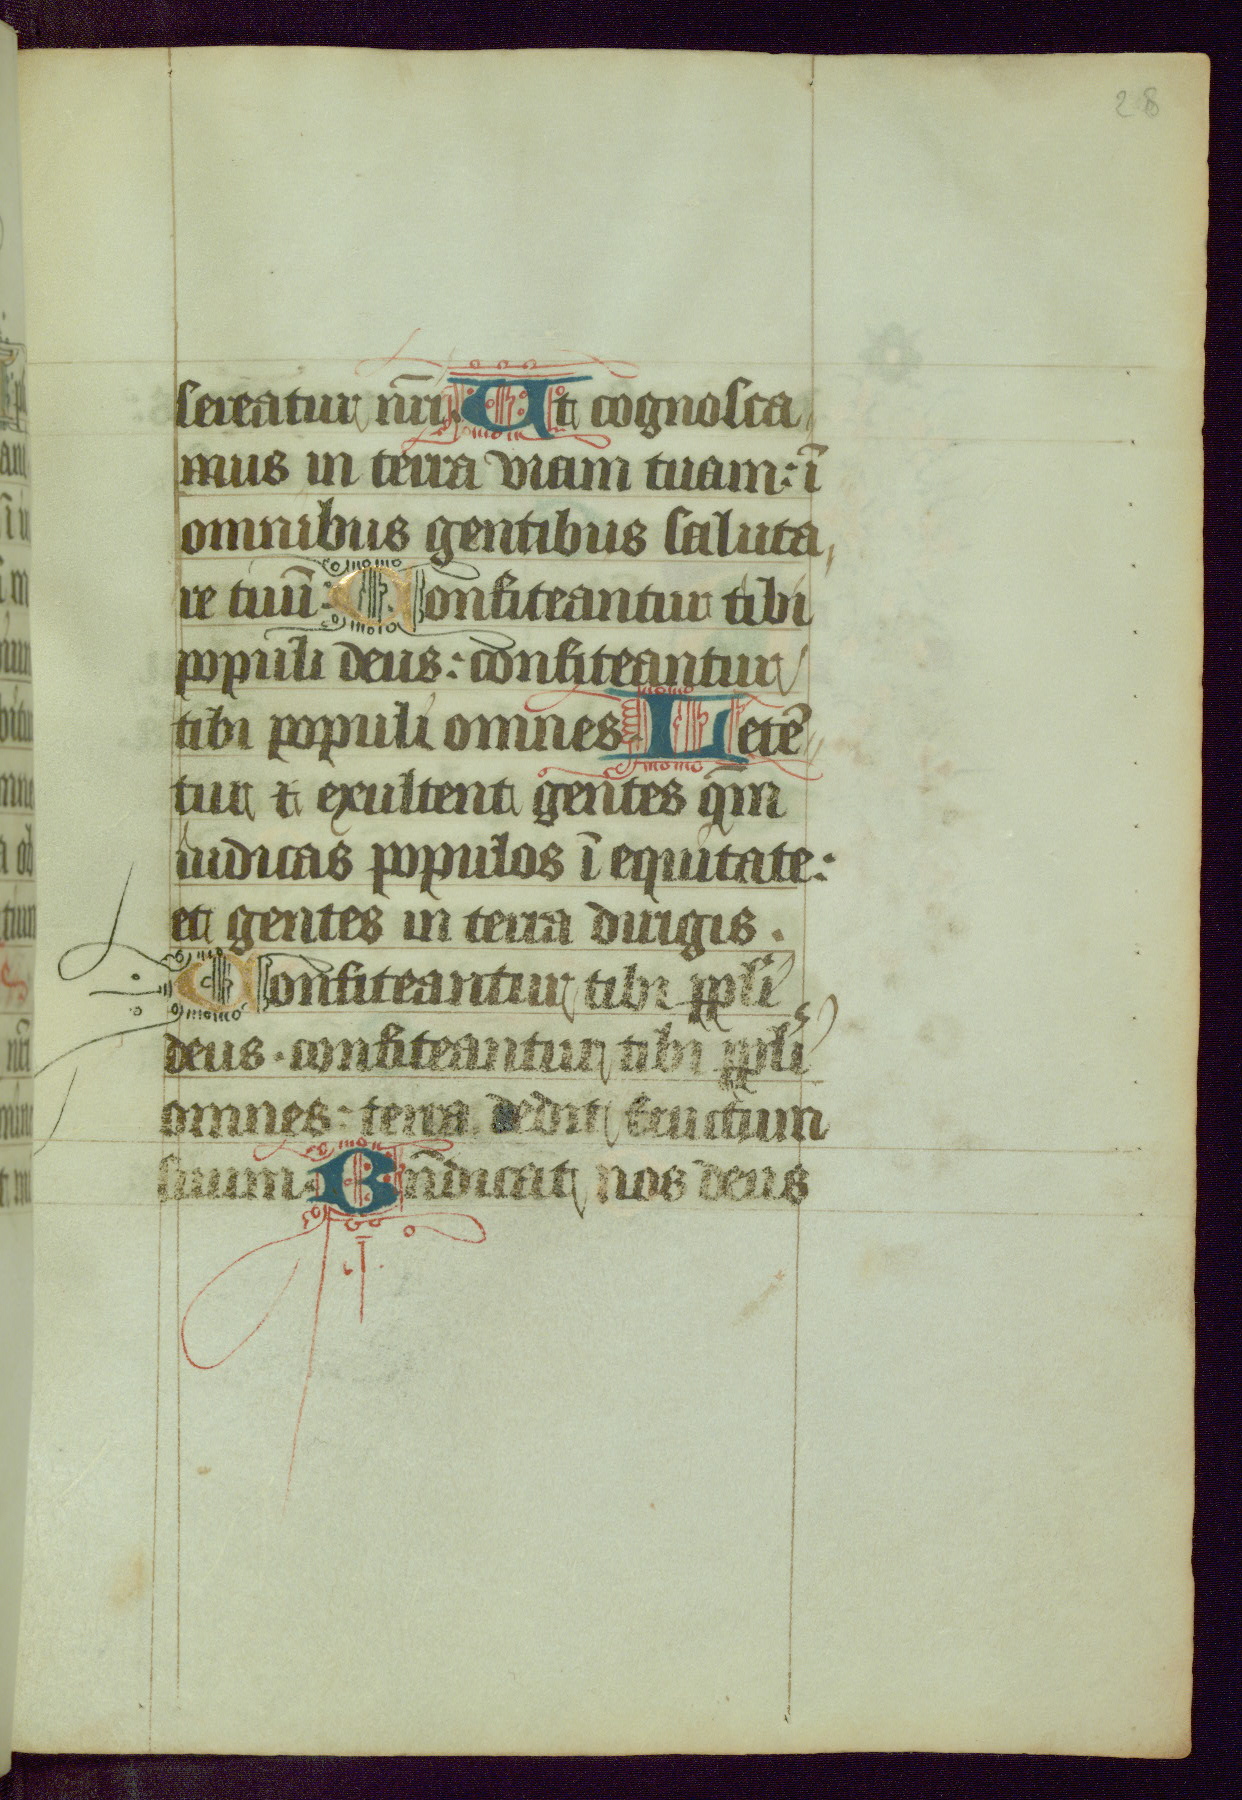 28
sereatur nr̄i. Ut cognosca
mus in terra viam tuam: ī
omnibus gentibus saluta
re tuū: Confiteantur tibi
populi deus: confiteantur
tibi populi omnes. Letē
tur et exultent gentes qm̄
iudicas populos ī equitate:
et gentes in terra dirigis.
Confiteantur tibi ppl̄i
deus. confiteantur tibi ppl̄i
omnes: terra dedit fructum
suum. Bn̄dicat nos deus